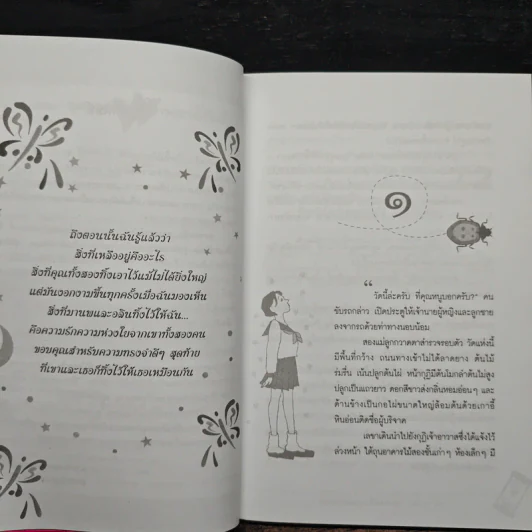 ถึงตอนนั้นฉันรู้แล้วว่า
สิ่งที่เหลืออยู่คืออะไร
สิ่งที่คุณทั้งสองทิ้งเอาไว้แม้ไม่ได้ยิ่งใหญ่
แต่มันงอกงามขึ้นทุกครั้งเมื่อฉันมองเห็น
สิ่งที่มานยและอลินทิ้งไว้ให้ฉัน...
คือความรักความห่วงใยจากเขาทั้งสองคน
ขอบคุณสำหรับความทรงจำดีๆ สุดท้าย
ที่เขาและเธอก็ทิ้งไว้ให้เธอเหมือนกัน
๑
“
วัดนี้ล่ะครับ ที่คุณหนูบอกครับ?” คน
ขับรถกล่าว เปิดประตูให้เจ้านายผู้หญิงและลูกชาย
ลงจากรถด้วยท่าทางนอบน้อม
สองแม่ลูกกวาดตาสำรวจรอบตัว วัดแห่งนี้
มีพื้นที่กว้าง ถนนทางเข้าไม่ได้ลาดยาง ต้นไม้
ร่มรื่น เน้นปลูกต้นไผ่ หน้ากุฏิมีต้นโมกลำต้นไม่สูง
ปลูกเป็นแถวยาว ดอกสีขาวส่งกลิ่นหอมอ่อนๆ และ
ด้านข้างเป็นกอไผ่ขนาดใหญ่ล้อมต้นด้วยเก้าอี้
หินอ่อนติดชื่อผู้บริจาค
เลขาเดินนำไปยังกุฏิเจ้าอาวาสซึ่งได้แจ้งไว้
ล่วงหน้า ใต้ถุนอาคารไม้สองชั้นเก่าๆ ห้องเล็กๆ มี